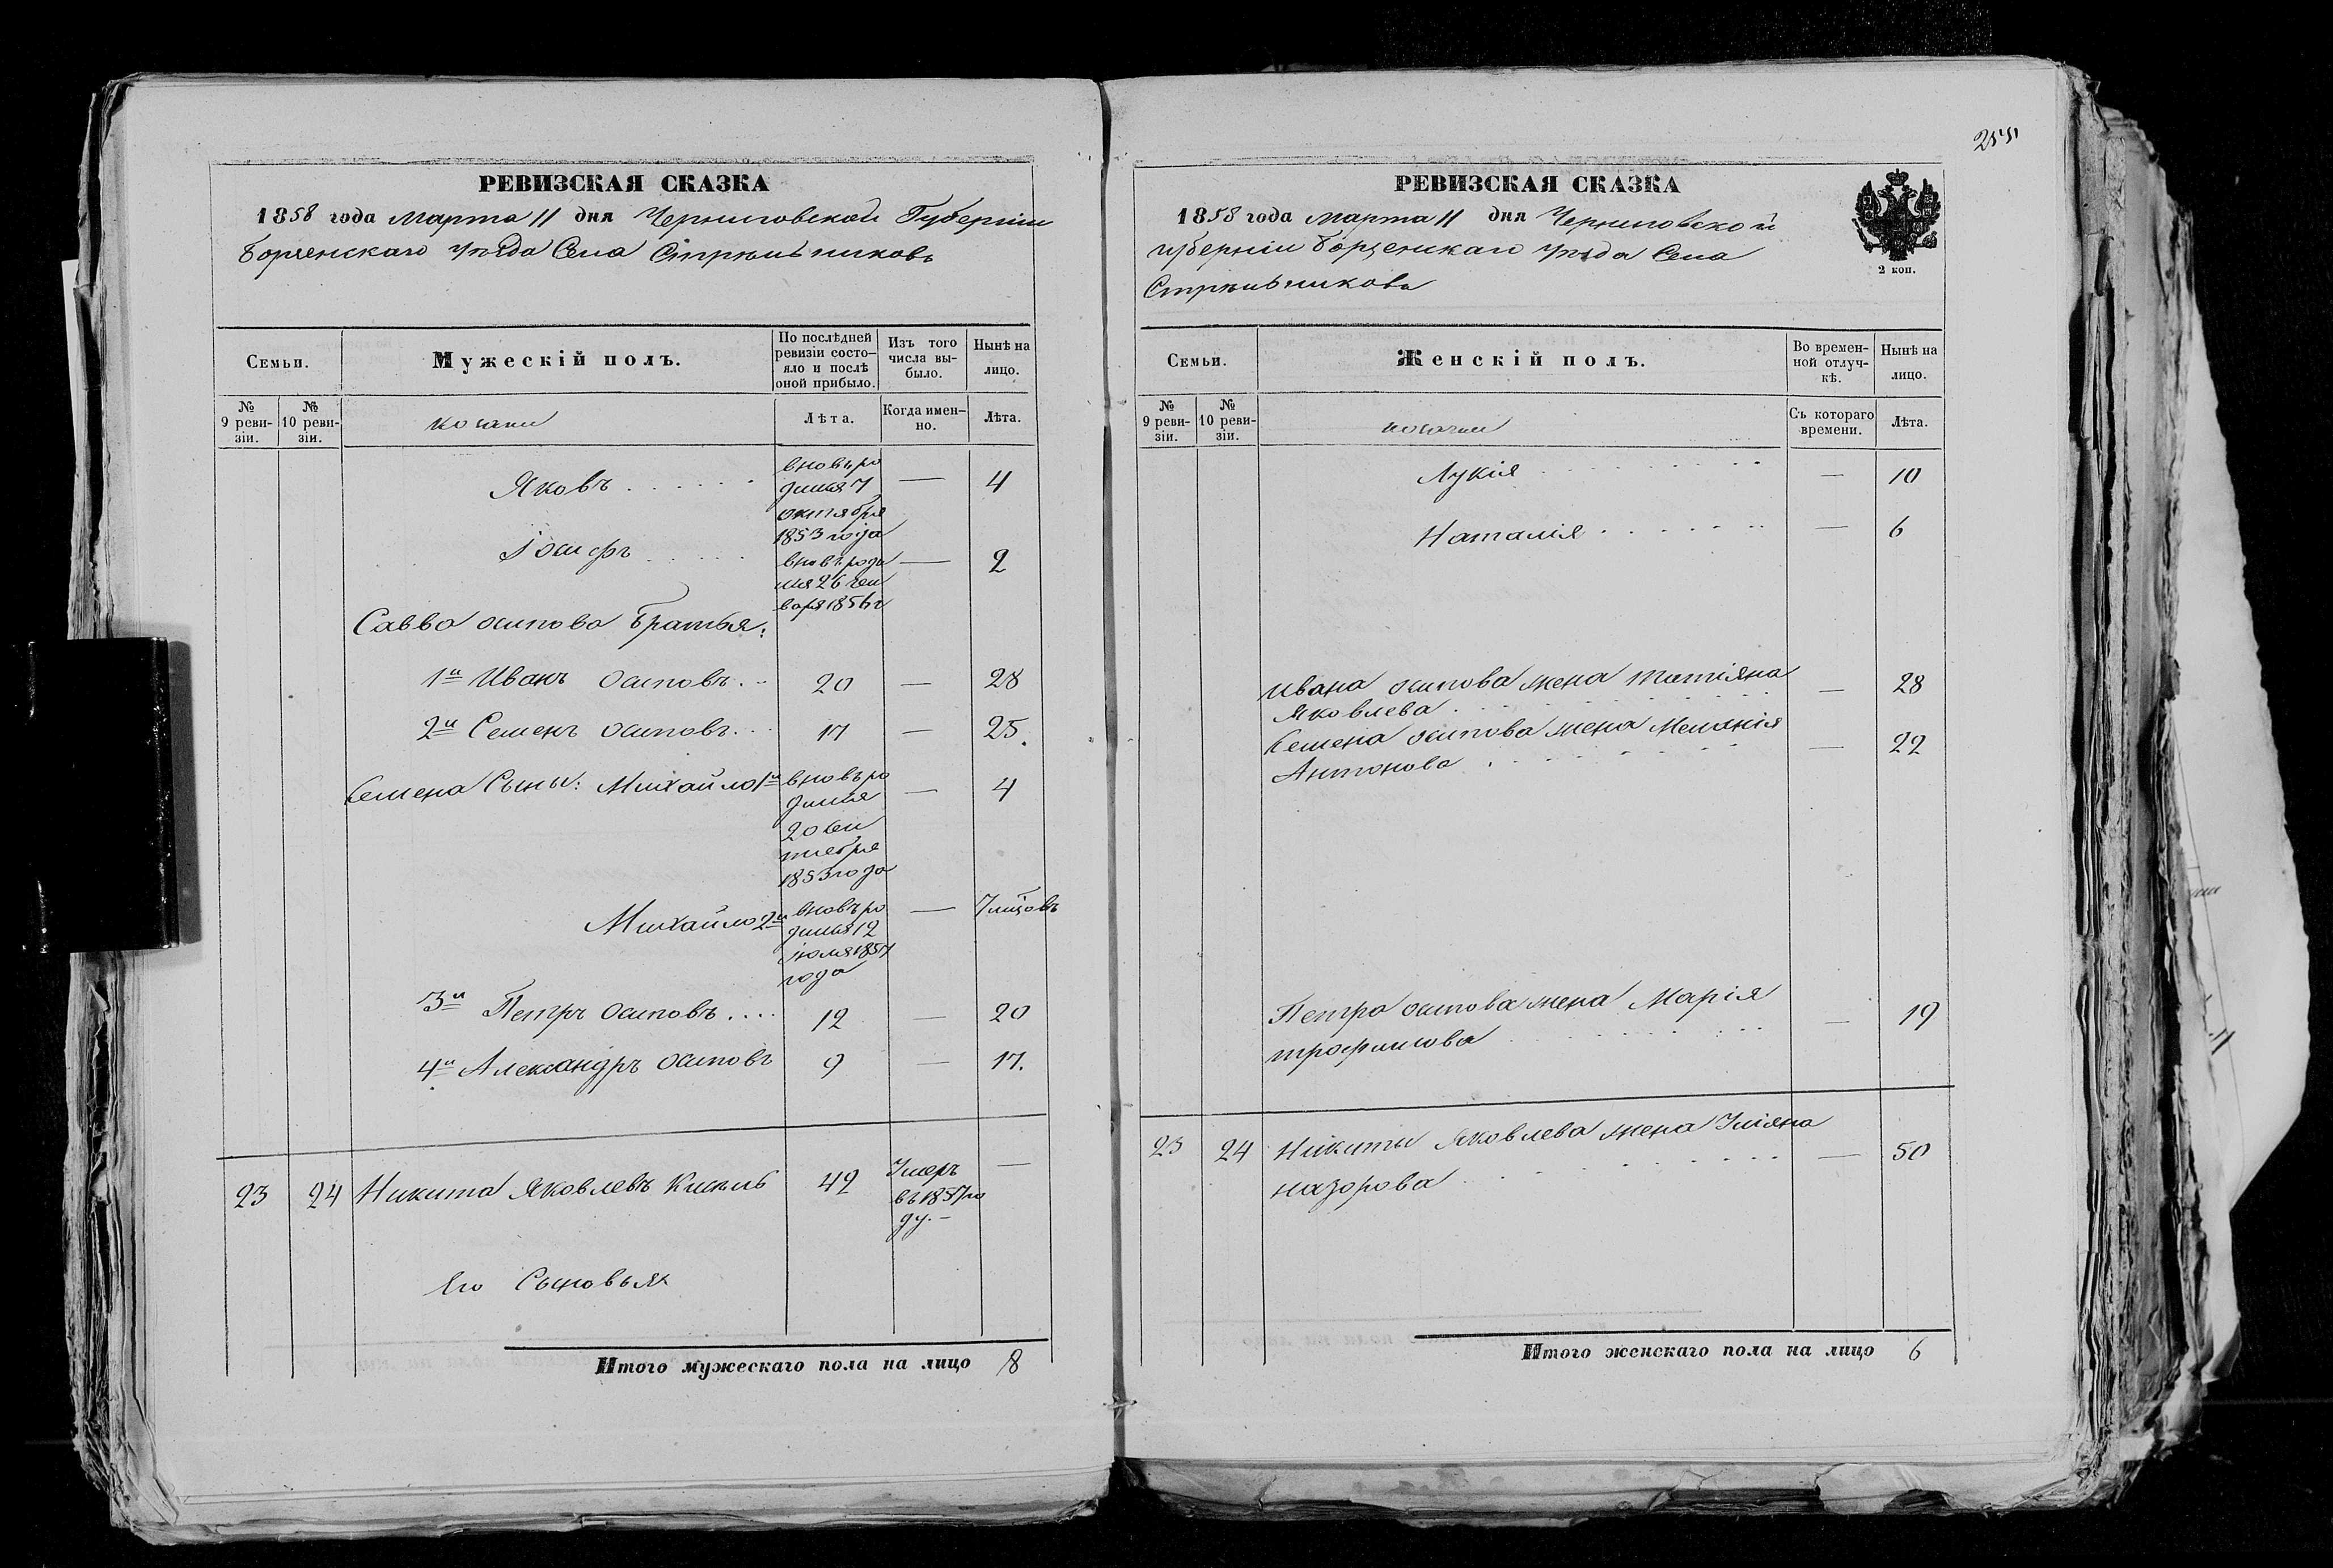 255
РЕВИЗСКАЯ СКАЗКА
1858 года Марта 11 дня Черниговской Губерніи
Борзенскаго уѣзда Села Стрѣльниковъ
Семьи.
Мужескій полъ.
По послѣдней ревизіи состо-
яло и послѣ
оной прибыло.
Изъ того
числа вы-
было.
Нынѣ на
лицо.
№
9 реви-
зіи.
№
10 реви-
зіи.
козаки
Лѣта.
Когда имен-
но.
Лѣта.
Яковъ . . . . . . вновь ро — 4
дился 7
октября
1853 года
Іосифъ . . . . . вновь роди — 2
лся 26 ген
варя 1856 г
Савва осипова братья:
1й Иванъ Осиповъ. .. 20 — 28
2й Семенъ Осиповъ. .. 17 — 25.
Семена Сыны: Михайло 1й вновь ро — 4
дился
20 сен
тября
1853 года
Михайло 2й вновь ро — 7 мѣсцовъ
дился 12
іюля 1857
года
3й Петръ Осиповъ . . . . 12 — 20
4й Александръ Осиповъ 9 — 17.
23 24 Никита Яковлевъ Кисель 42 Умеръ —
въ 1857 го
ду. —
Его Сыновья
Итого мужескаго пола на лицо 8
РЕВИЗСКАЯ СКАЗКА
1858 года Марта 11 дня Черниговской
губерніи Борзенскаго уѣзда Села
Стрѣльникова
2 коп.
Семьи.
Женскій полъ.
Во времен-
ной отлуч-
кѣ.
Нынѣ на
лицо.
№
9 реви-
зіи.
№
10 реви-
зіи.
козачки
Съ котораго
времени.
Лѣта.
Лукія . . . . . . . . . — 10
Наталія . . . . . . . — 6
Ивана осипова жена Татіяна — 28
Яковлева . . . . . . . .
Семена осипова жена Меланія — 22
Антонова . . . . . . .
Петра осипова жена Марія — 19
трофимова . . . . . . .
23 24 Никиты Яковлева жена Уліяна — 50
назорова . . . . . . . .
Итого женскаго пола на лицо 6